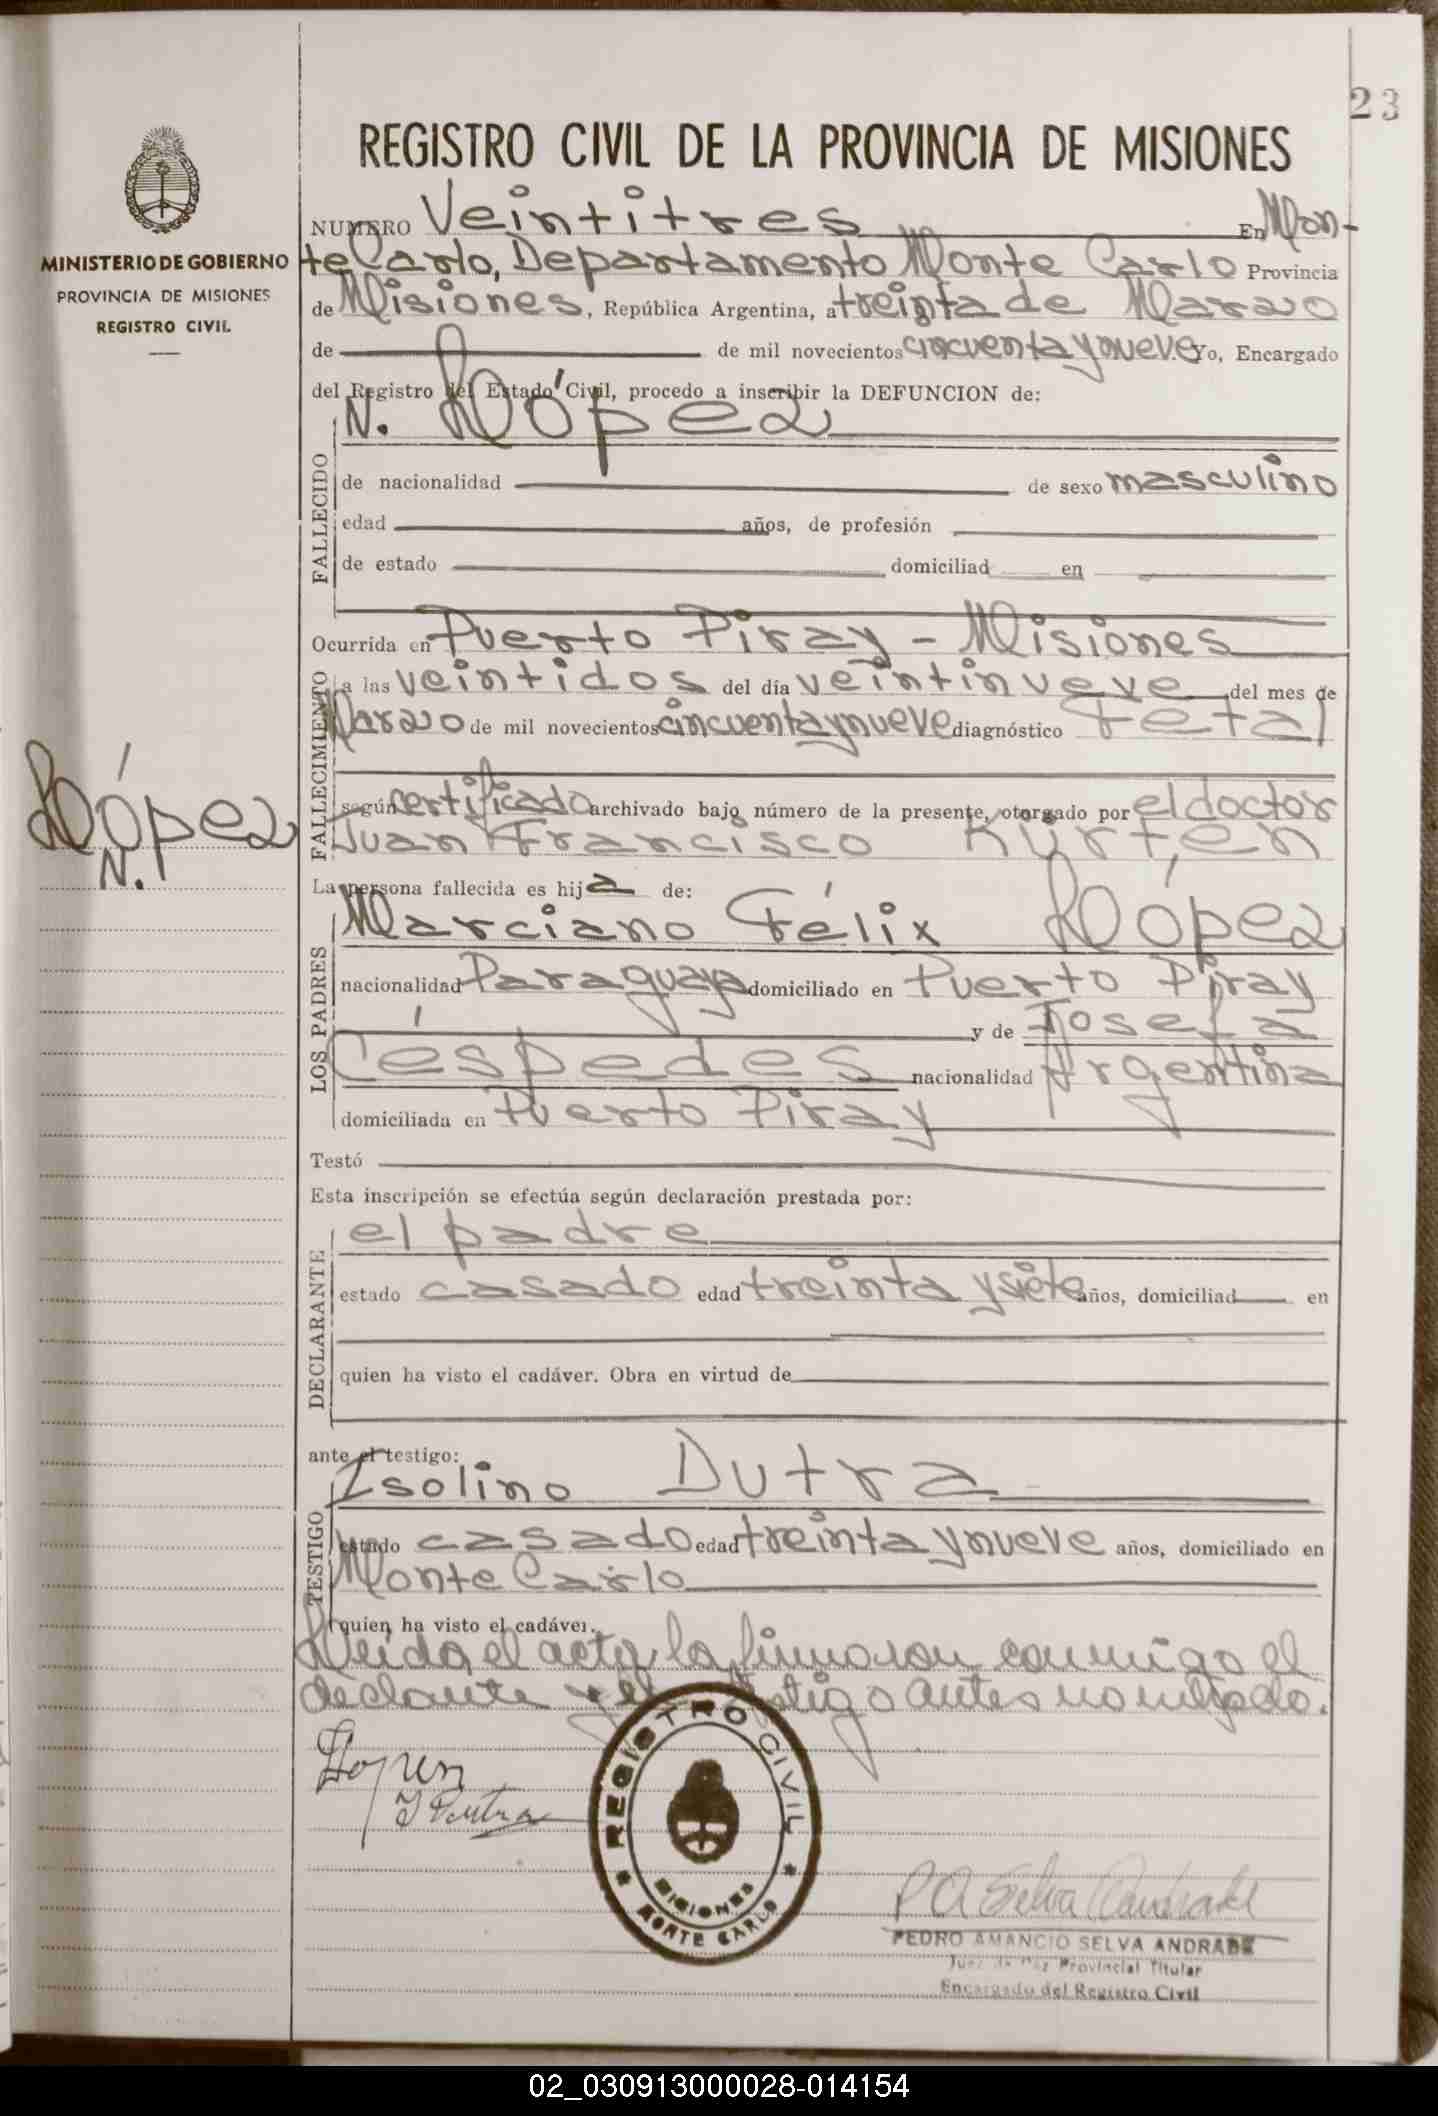 23
REGISTRO CIVIL DE LA PROVINCIA DE MISIONES
MINISTERIO DE GOBIERNO
PROVINCIA DE MISIONES
REGISTRO CIVIL
López
N.
NUMERO Veintitres En Mon-
te Carlo, Departamento Monte Carlo Provincia
de Misiones, República Argentina, a treinta de Marzo
de de mil novecientos cincuenta y nueve. Yo, Encargado
del Registro del Estado Civil, procedo a inscribir la DEFUNCION de:
N. López
FALLECIDO
de nacionalidad de sexo masculino
edad años, de profesión
de estado domiciliad en
Ocurrida en Puerto Piray - Misiones
FALLECIMIENTO
a las veintidos del día veintinueve del mes de
Marzo de mil novecientos cincuenta y nueve diagnóstico Fetal
según certificado archivado bajo número de la presente, otorgado por el doctor
Juan Francisco Kürten
La persona fallecida es hija de:
LOS PADRES
Marciano Félix López
nacionalidad Paraguaya domiciliado en Puerto Piray
y de Josefa
Céspedes nacionalidad Argentina
domiciliada en Puerto Piray
Testó
Esta inscripción se efectúa según declaración prestada por:
DECLARANTE
el padre
estado casado edad treinta y siete años, domiciliad en
quien ha visto el cadáver. Obra en virtud de
ante el testigo:
TESTIGO
Isolino Dutra
estado casado edad treinta y nueve años, domiciliado en
Monte Carlo
quien ha visto el cadáver.
Leida el acta la firmaron conmigo el
declarante y el testigo antes nombrado.
Lopez
I Dutra
REGISTRO CIVIL
MISIONES
MONTE CARLO
P A Selva Andrade
PEDRO AMANCIO SELVA ANDRADE
Juez de Paz Provincial Titular
Encargado del Registro Civil
02_030913000028-014154